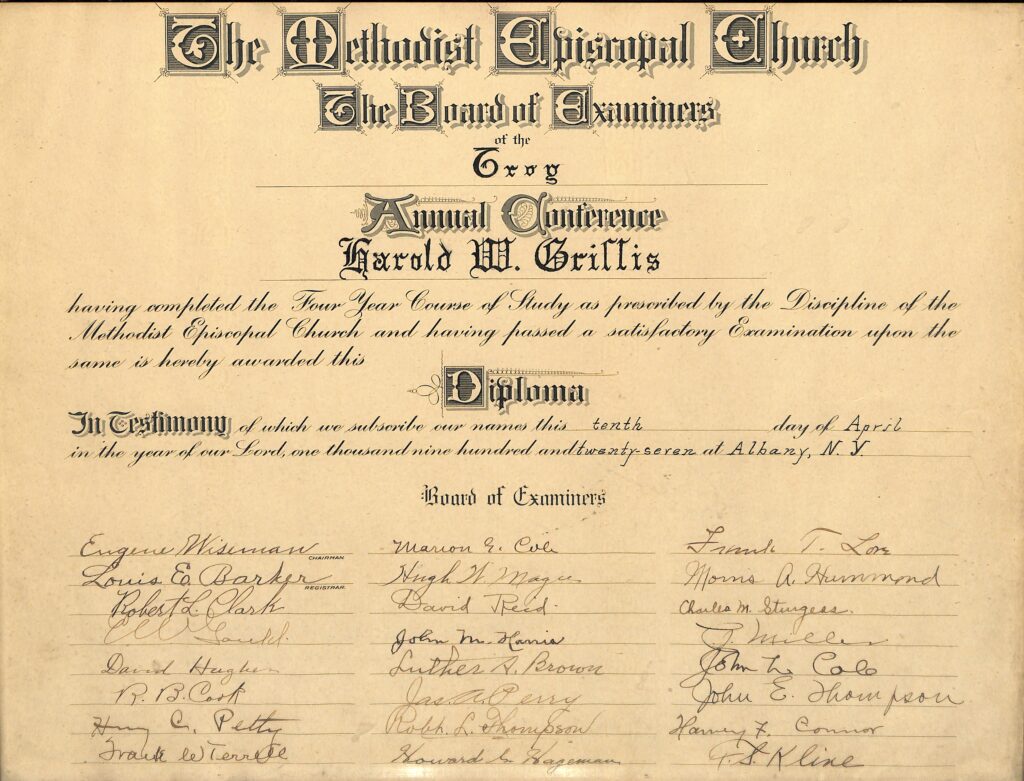 The Methodist Episcopal Church
The Board of Examiners
of the
Troy
Annual Conference
Harold W. Griffis
having completed the Four Year Course of Study as prescribed by the Discipline of the
Methodist Episcopal Church and having passed a satisfactory Examination upon the
same is hereby awarded this
Diploma
In Testimony of which we subscribe our names this tenth day of April
in the year of our Lord, one thousand nine hundred and twenty-seven at Albany, N. Y.
Board of Examiners
Eugene Wiseman CHAIRMAN Marion G. Cole Frank T. Love
Louis E. Barker REGISTRAR Hugh W. Magee Morris A. Hummond
Robert L. Clark David Reid Charles M. Sturgess.
John M. Harris Miller
David Hughes Luther A. Brown John L. Cole
R. B. Cook Jas A. Perry John E. Thompson
C. Petty Robt. L. Thompson Harvey F. Connor
Frank W Terrell Howard Hageman F. S. Kline